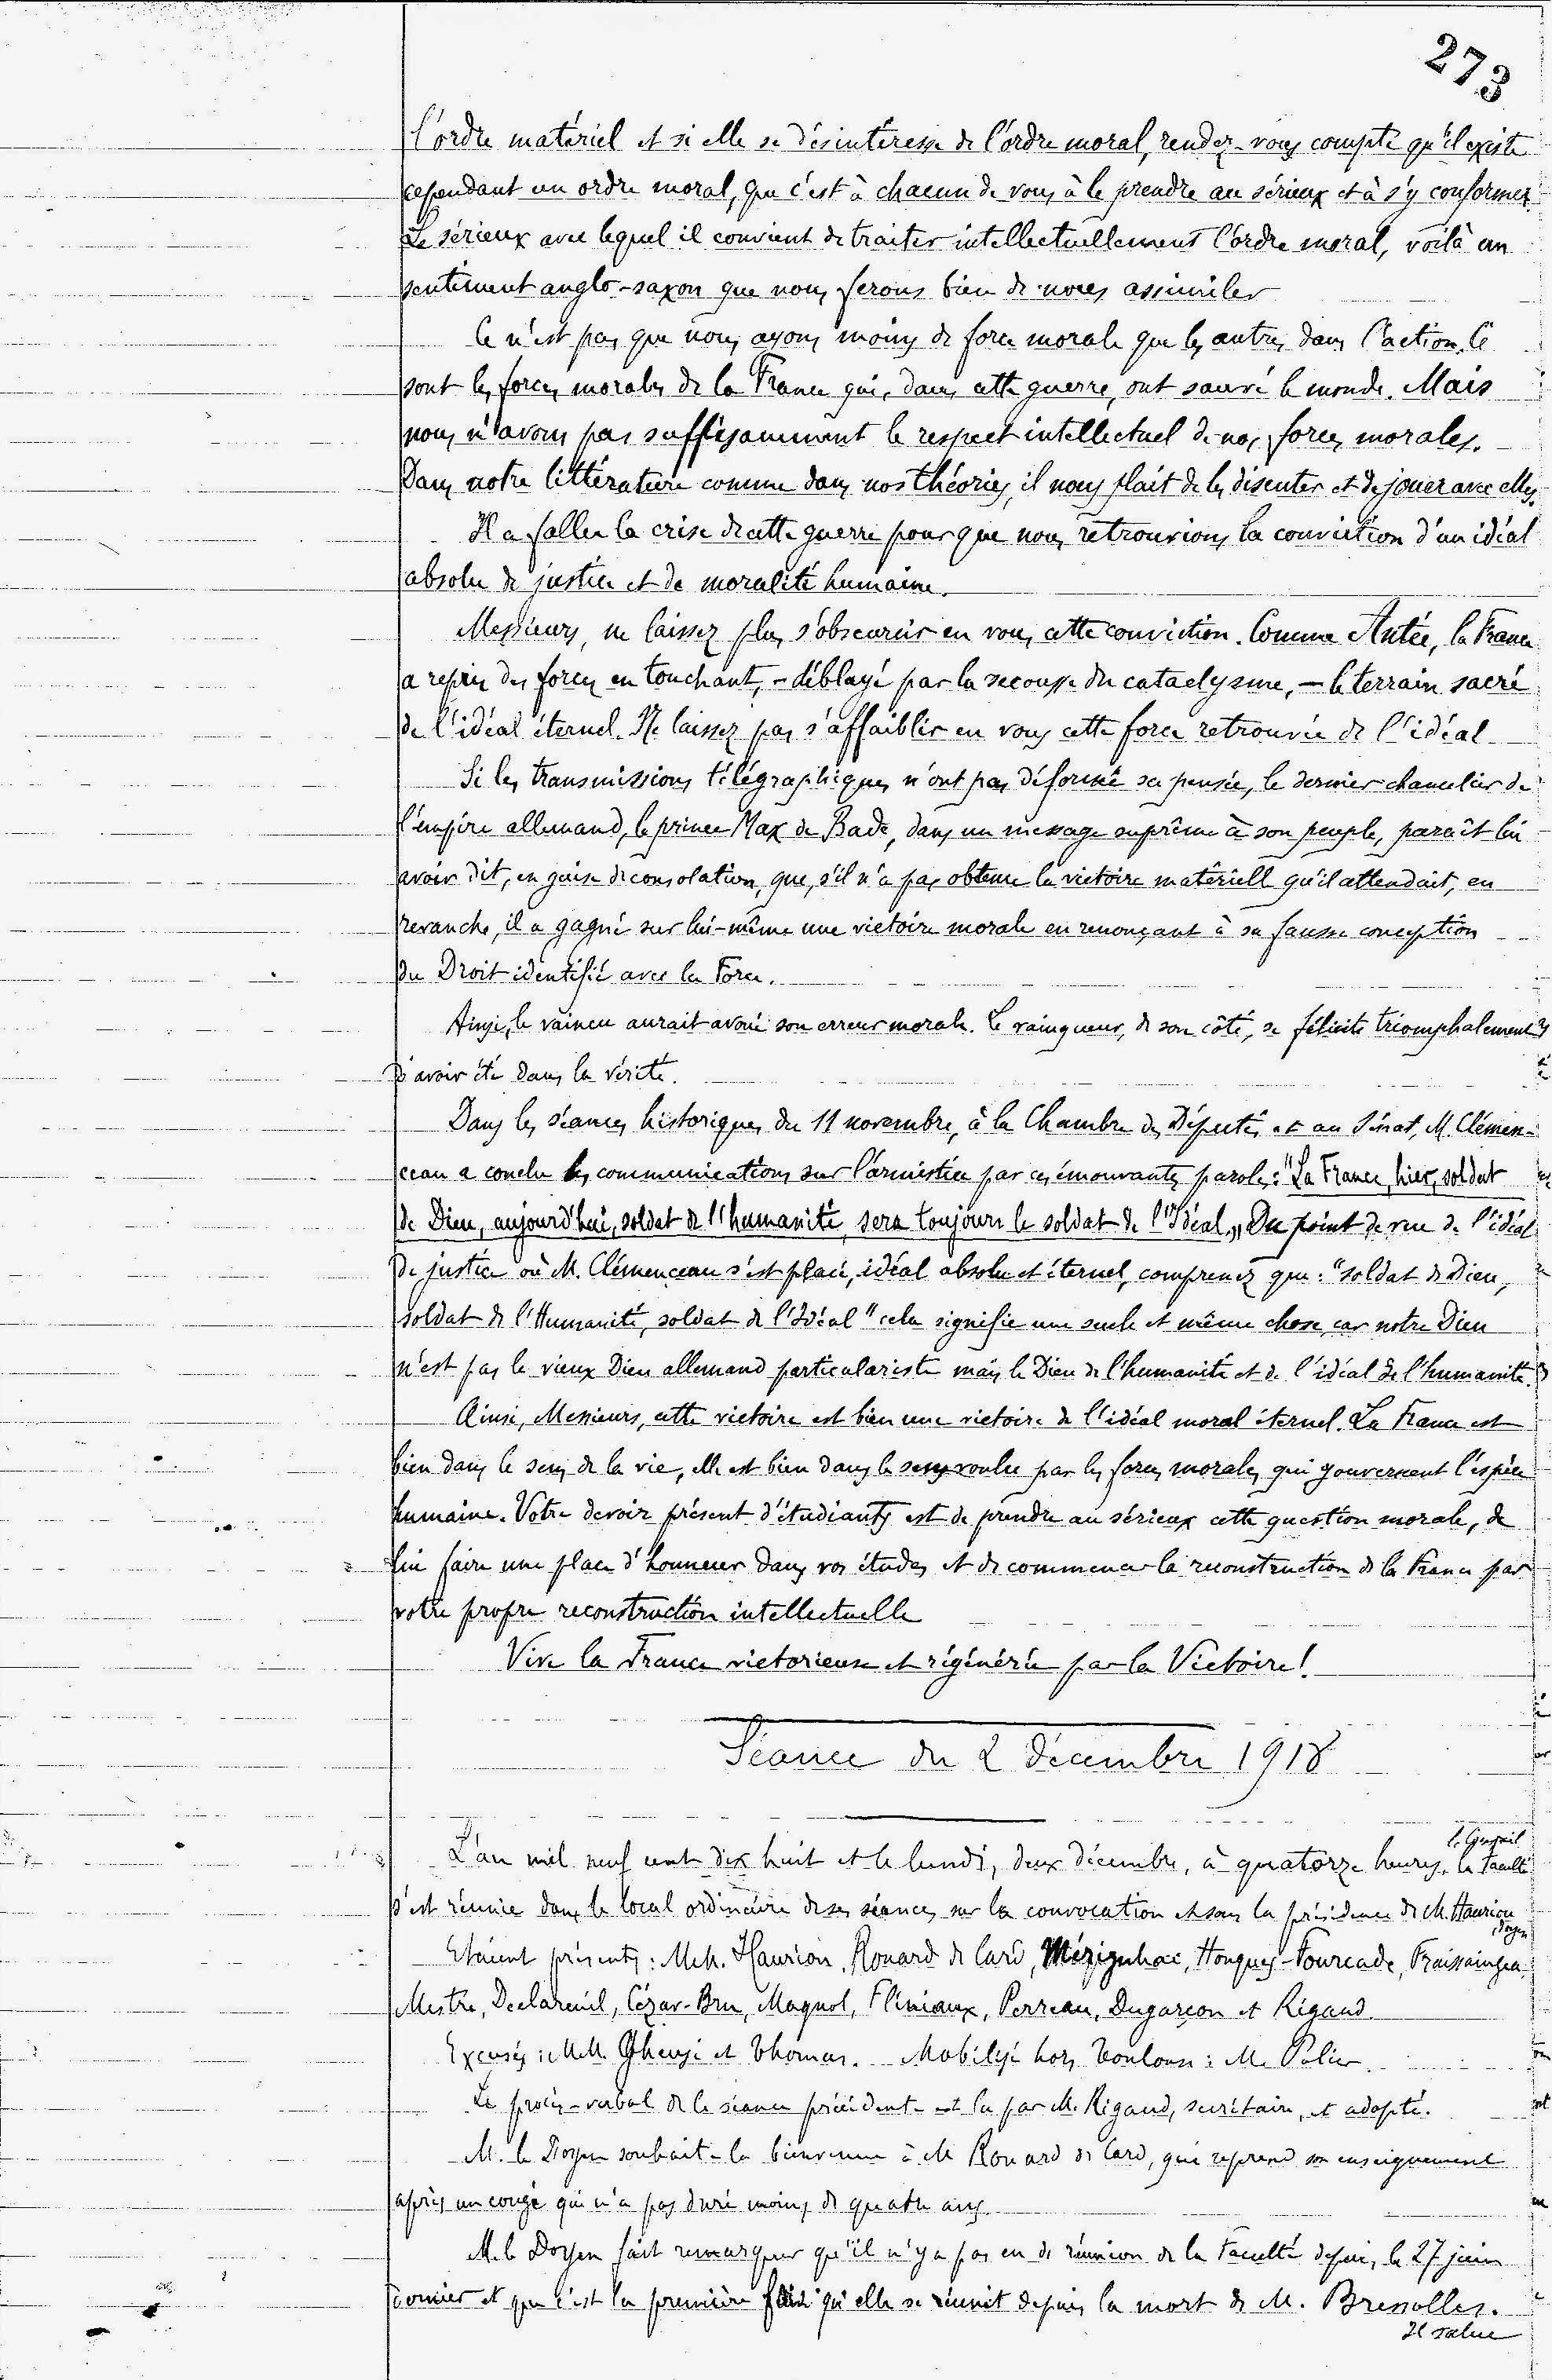 273
l'ordre matériel et si elle se désintéresse de l'ordre moral, rendez-vous compte qu'il existe
cependant un ordre moral, que c'est à chacun de vous à le prendre au sérieux et à s'y conformer.
Le sérieux avec lequel il convient de traiter intellectuellement l'ordre moral, voilà un
sentiment anglo-saxon que nous ferons bien de nous assimiler
Ce n'est pas que nous ayons moins de force morale que les autres dans l'action. Ce
sont les forces morales de la France qui, dans cette guerre, ont sauvé le monde. Mais
nous n'avons pas suffisamment le respect intellectuel de nos forces morales.
Dans notre littérature comme dans nos théories, il nous plaît de les discuter et de jouer avec elles.
Il a fallu la crise de cette guerre pour que nous retrouvions la conviction d'un idéal
absolu de justice et de moralité humaine.
Messieurs, ne laissez plus s'obscurcir en vous cette conviction. Comme Antée, la France
a repris des forces en touchant, - déblayé par la secousse du cataclysme, - le terrain sacré
de l'idéal éternel. Ne laissez pas s'affaiblir en vous cette force retrouvée de l'idéal
Si les transmissions télégraphiques n'ont pas déformé sa pensée, le dernier chancelier de
l'empire allemand, le prince Max de Bade, dans un message suprême à son peuple, paraît lui
avoir dit, en guise de consolation, que, s'il n'a pas obtenu la victoire matérielle qu'il attendait, en
revanche, il a gagné sur lui-même une victoire morale en renonçant à sa fausse conception
du Droit identifié avec la Force.
Ainsi, le vaincu aurait avoué son erreur morale. Le vainqueur, de son côté, se félicite triomphalement
d'avoir été dans la vérité.
Dans les séances historiques du 11 novembre, à la Chambre des Députés et au Sénat, M. Clémen-
ceau a conclu les communications sur l'armistice par ces émouvantes paroles: "La France, hier, soldat
de Dieu, aujourd'hui, soldat de l'humanité, sera toujours le soldat de l'Idéal." Du point de vue de l'idéal
de justice où M. Clémenceau s'est placé, idéal absolu et éternel, comprenez que: "soldat de Dieu,
soldat de l'Humanité, soldat de l'Idéal" cela signifie une seule et même chose, car notre Dieu
n'est pas le vieux Dieu allemand particulariste mais le Dieu de l'humanité et de l'idéal de l'humanité.
Ainsi, Messieurs, cette victoire est bien une victoire de l'idéal moral éternel. La France est
bien dans le sens de la vie, elle est bien dans le sens voulu par les forces morales qui gouvernent l'espèce
humaine. Votre devoir présent d'étudiants est de prendre au sérieux cette question morale, de
lui faire une place d'honneur dans vos études et de commencer la reconstruction de la France par
votre propre reconstruction intellectuelle
Vive la France victorieuse et régénérée par la Victoire!
Séance du 2 décembre 1918
le Conseil
L'an mil neuf cent dix huit et le lundi, deux décembre, à quatorze heures, la Faculté
s'est réunie dans le local ordinaire de ses séances, sur la convocation et sous la présidence de M. Hauriou
, doyen
Etaient présents: MM. Hauriou, Rouard de Card, Mérignhac, Houques-Fourcade, Fraissaingea,
Mestre, Declareuil, Cézar-Bru, Magnol, Fliniaux, Perreau, Dugarçon et Rigaud.
Excusés: MM. Gheusi et Thomas. Mobilisé hors Toulouse: M. Polier
Le procès-verbal de la séance précédente est lu par M. Rigaud, secrétaire, et adopté.
M. le Doyen souhaite la bienvenue à M Rouard de Card, qui reprend son enseignement
après un congé qui n'a pas duré moins de quatre ans.
M. le Doyen fait remarquer qu'il n'y a pas eu de réunion de la Faculté depuis le 27 juin
dernier et que c'est la première fois qu'elle se réunit depuis la mort de M. Bressolles.
Il salue